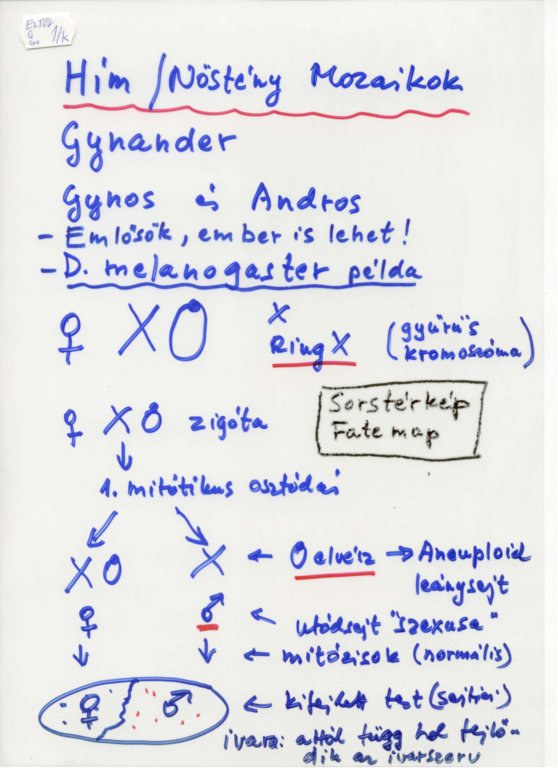 ELTE
G 1/k
Hím / Nőstény Mozaikok
Gynander
Gynos és Andros
- Emlősök, ember is lehet!
- D. melanogaster példa
♀ XO X
Ring X (gyűrűs
kromoszóma)
Sorstérkép
Fate map
♀ XO zigóta
↓
1. mitótikus osztódás
XO X ← O elvész → Aneuploid
leánysejt
♀ ♂ ← utódsejt "szexusa"
↓ ↓ ← mitózisok (normális)
♀ ♂ ← kifejlett test (sejtjei)
ivara: attól függ hol fejlő-
dik az ivarszerv